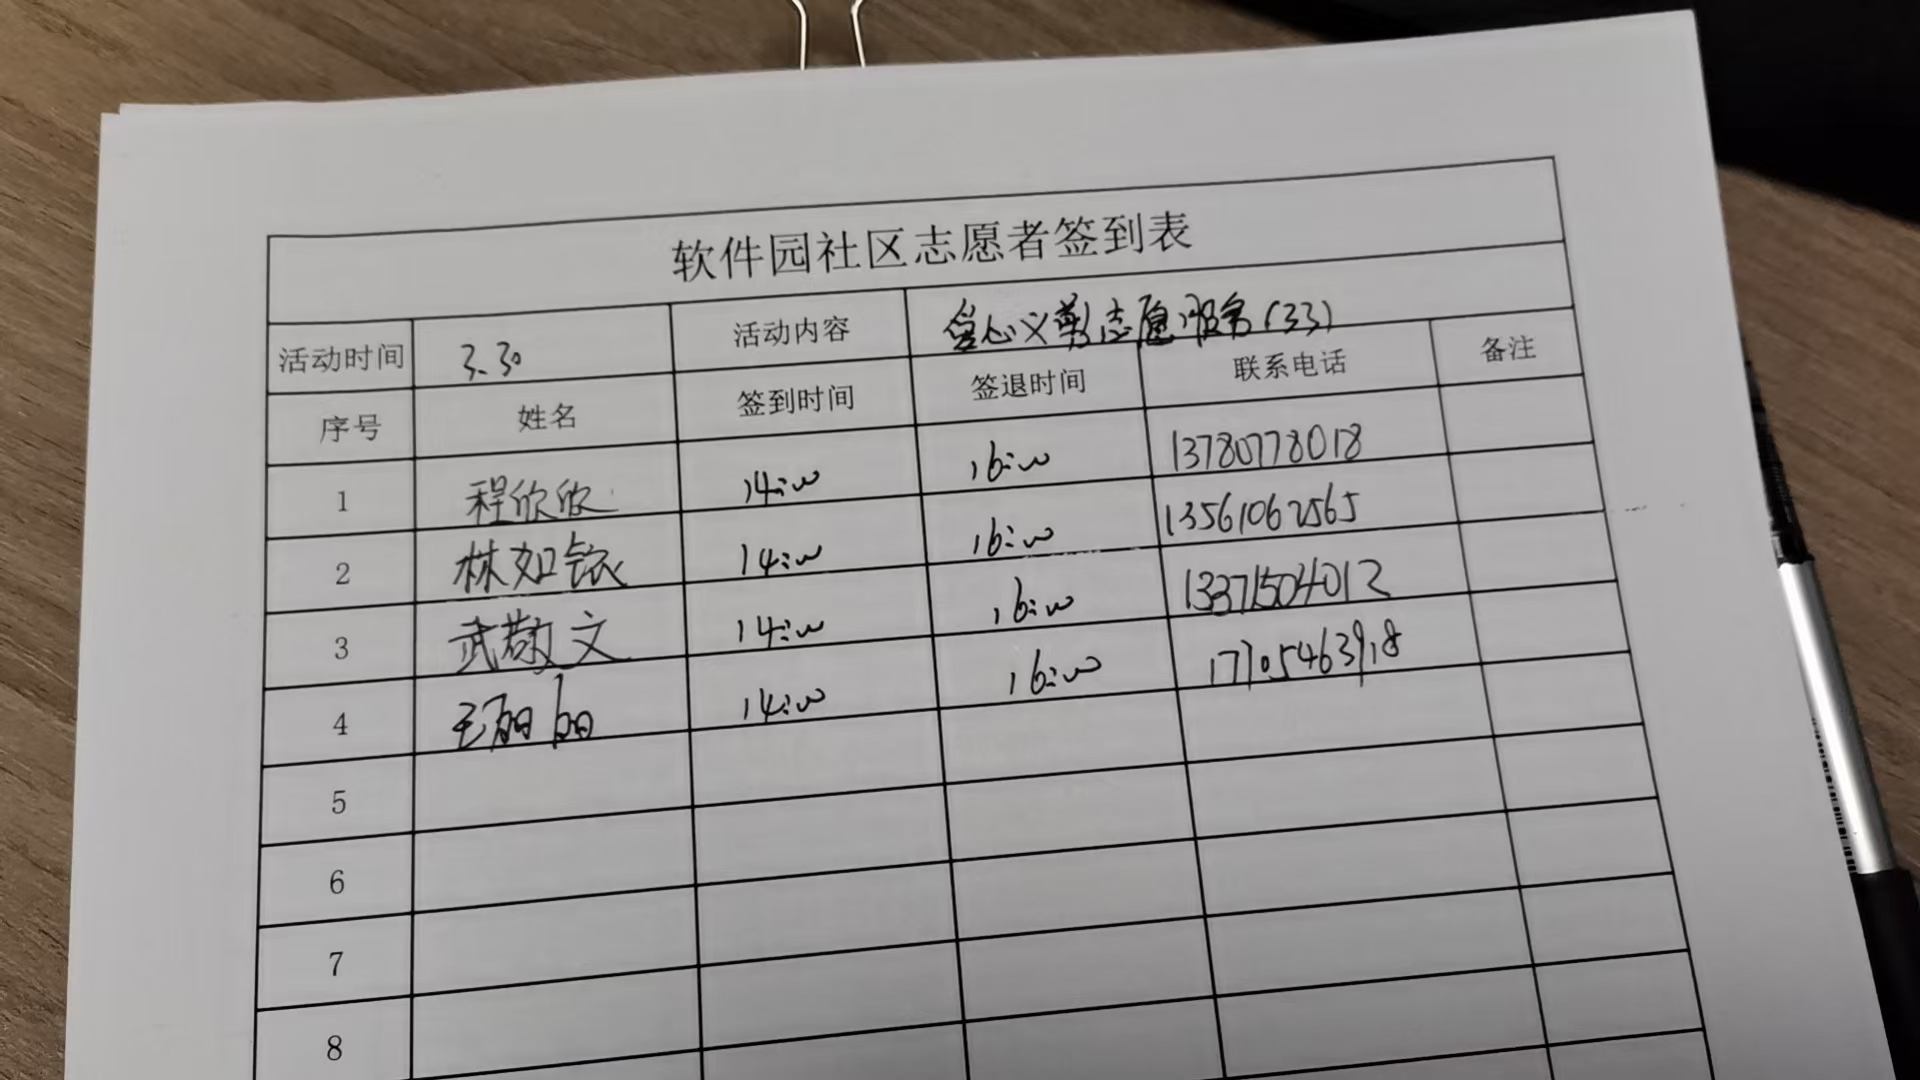 软件园社区志愿者签到表
活动时间 3.30 活动内容 爱心义剪志愿服务(33)
序号 姓名 签到时间 签退时间 联系电话 备注
1 程欣欣 14:00 16:00 13780778018
2 林如铱 14:00 16:00 13561062565
3 武敬文 14:00 16:00 13371504012
4 王丽丽 14:00 16:00 17705463918
5
6
7
8